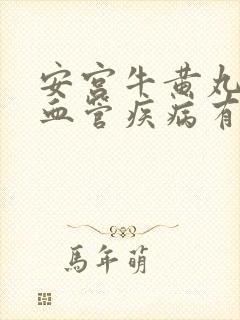 安宫牛黄丸
血管疾病有
馬年萌